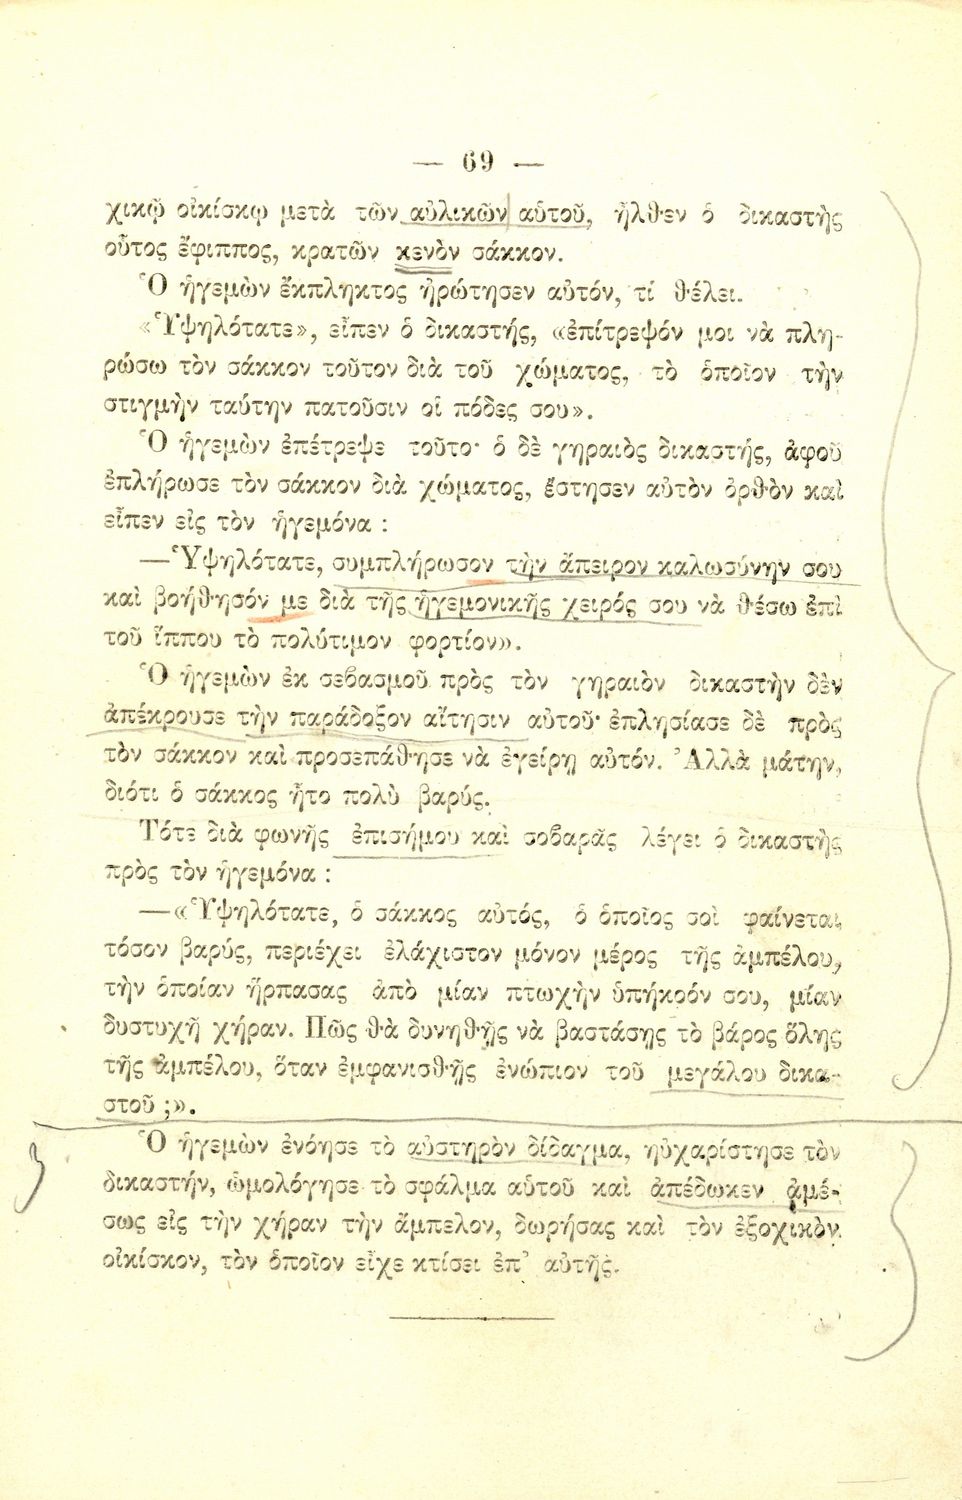 — 69 —
χικῷ οἰκίσκῳ μετὰ τῶν αὐλικῶν αὐτοῦ, ἦλθεν ὁ δικαστὴς
οὗτος ἔφιππος, κρατῶν κενὸν σάκκον.
Ὁ ἡγεμὼν ἔκπληκτος ἠρώτησεν αὐτόν, τί θέλει.
«Ὑψηλότατε», εἶπεν ὁ δικαστής, «ἐπίτρεψόν μοι νὰ πλη-
ρώσω τὸν σάκκον τοῦτον διὰ τοῦ χώματος, τὸ ὁποῖον τὴν
στιγμὴν ταύτην πατοῦσιν οἱ πόδες σου».
Ὁ ἡγεμὼν ἐπέτρεψε τοῦτο· ὁ δὲ γηραιὸς δικαστής, ἀφοῦ
ἐπλήρωσε τὸν σάκκον διὰ χώματος, ἔστησεν αὐτὸν ὀρθὸν καὶ
εἶπεν εἰς τὸν ἡγεμόνα :
—Ὑψηλότατε, συμπλήρωσον τὴν ἄπειρον καλωσύνην σου
καὶ βοήθησόν με διὰ τῆς ἡγεμονικῆς χειρός σου νὰ θέσω ἐπὶ
τοῦ ἵππου τὸ πολύτιμον φορτίον».
Ὁ ἡγεμὼν ἐκ σεβασμοῦ πρὸς τὸν γηραιὸν δικαστὴν δὲν
ἀπέκρουσε τὴν παράδοξον αἴτησιν αὐτοῦ· ἐπλησίασε δὲ πρὸς
τὸν σάκκον καὶ προσεπάθησε νὰ ἐγείρῃ αὐτόν. Ἀλλὰ μάτην,
διότι ὁ σάκκος ἦτο πολὺ βαρύς.
Τότε διὰ φωνῆς ἐπισήμου καὶ σοβαρᾶς λέγει ὁ δικαστὴς
πρὸς τὸν ἡγεμόνα :
—«Ὑψηλότατε, ὁ σάκκος αὐτός, ὁ ὁποῖος σοὶ φαίνεται
τόσον βαρύς, περιέχει ἐλάχιστον μόνον μέρος τῆς ἀμπέλου,
τὴν ὁποίαν ἥρπασας ἀπὸ μίαν πτωχὴν ὑπήκοόν σου, μίαν
δυστυχῆ χήραν. Πῶς θὰ δυνηθῇς νὰ βαστάσῃς τὸ βάρος ὅλης
τῆς ἀμπέλου, ὅταν ἐμφανισθῇς ἐνώπιον τοῦ μεγάλου δικα-
στοῦ ;».
Ὁ ἡγεμὼν ἐνόησε τὸ αὐστηρὸν δίδαγμα, ηὐχαρίστησε τὸν
δικαστήν, ὡμολόγησε τὸ σφάλμα αὐτοῦ καὶ ἀπέδωκεν ἀμέ-
σως εἰς τὴν χήραν τὴν ἄμπελον, δωρήσας καὶ τὸν ἐξοχικὸν
οἰκίσκον, τὸν ὁποῖον εἶχε κτίσει ἐπ' αὐτῆς.